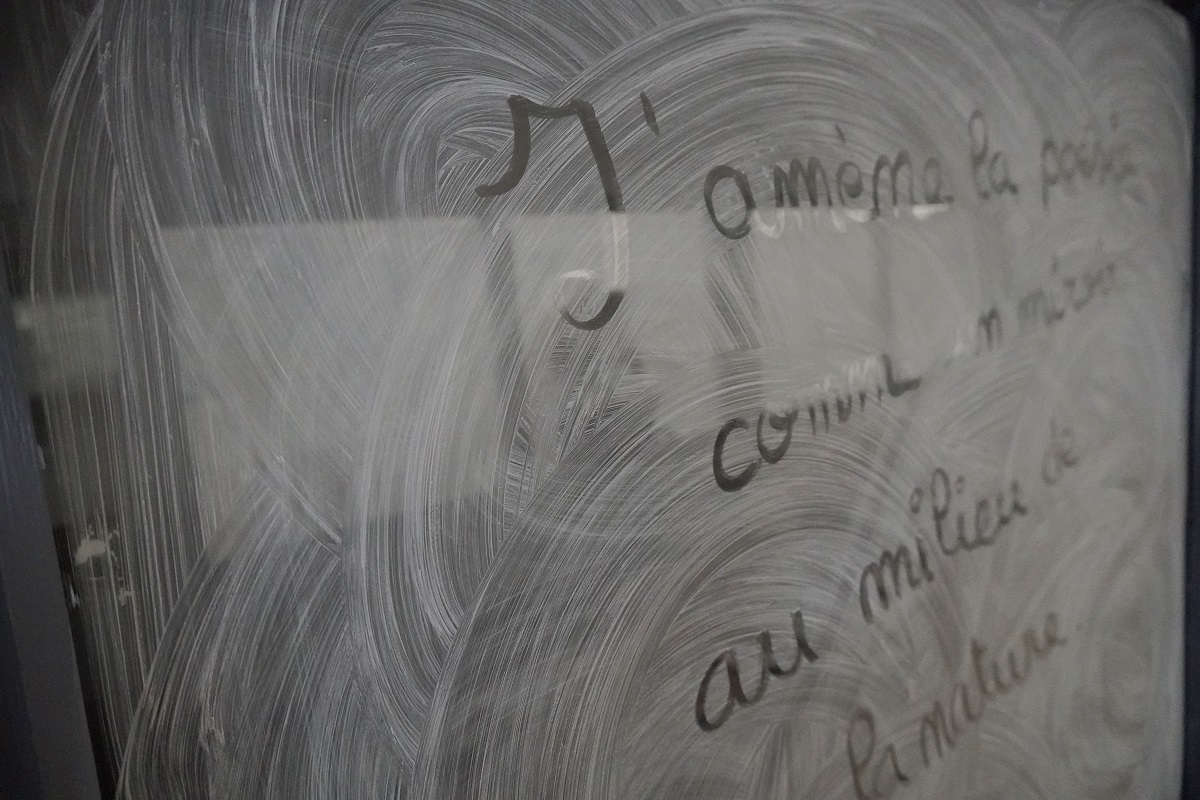 J' amène la poésie
comme un miroir
au milieu de
la nature